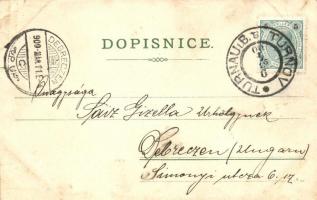 DOPISNICE.
TURNAU B. TURNOV
DEBRECZEN
Nagysága
Gizella Úrhölgynek
Debreczen (Ungarn)
Simonyi utcza 6. sz.